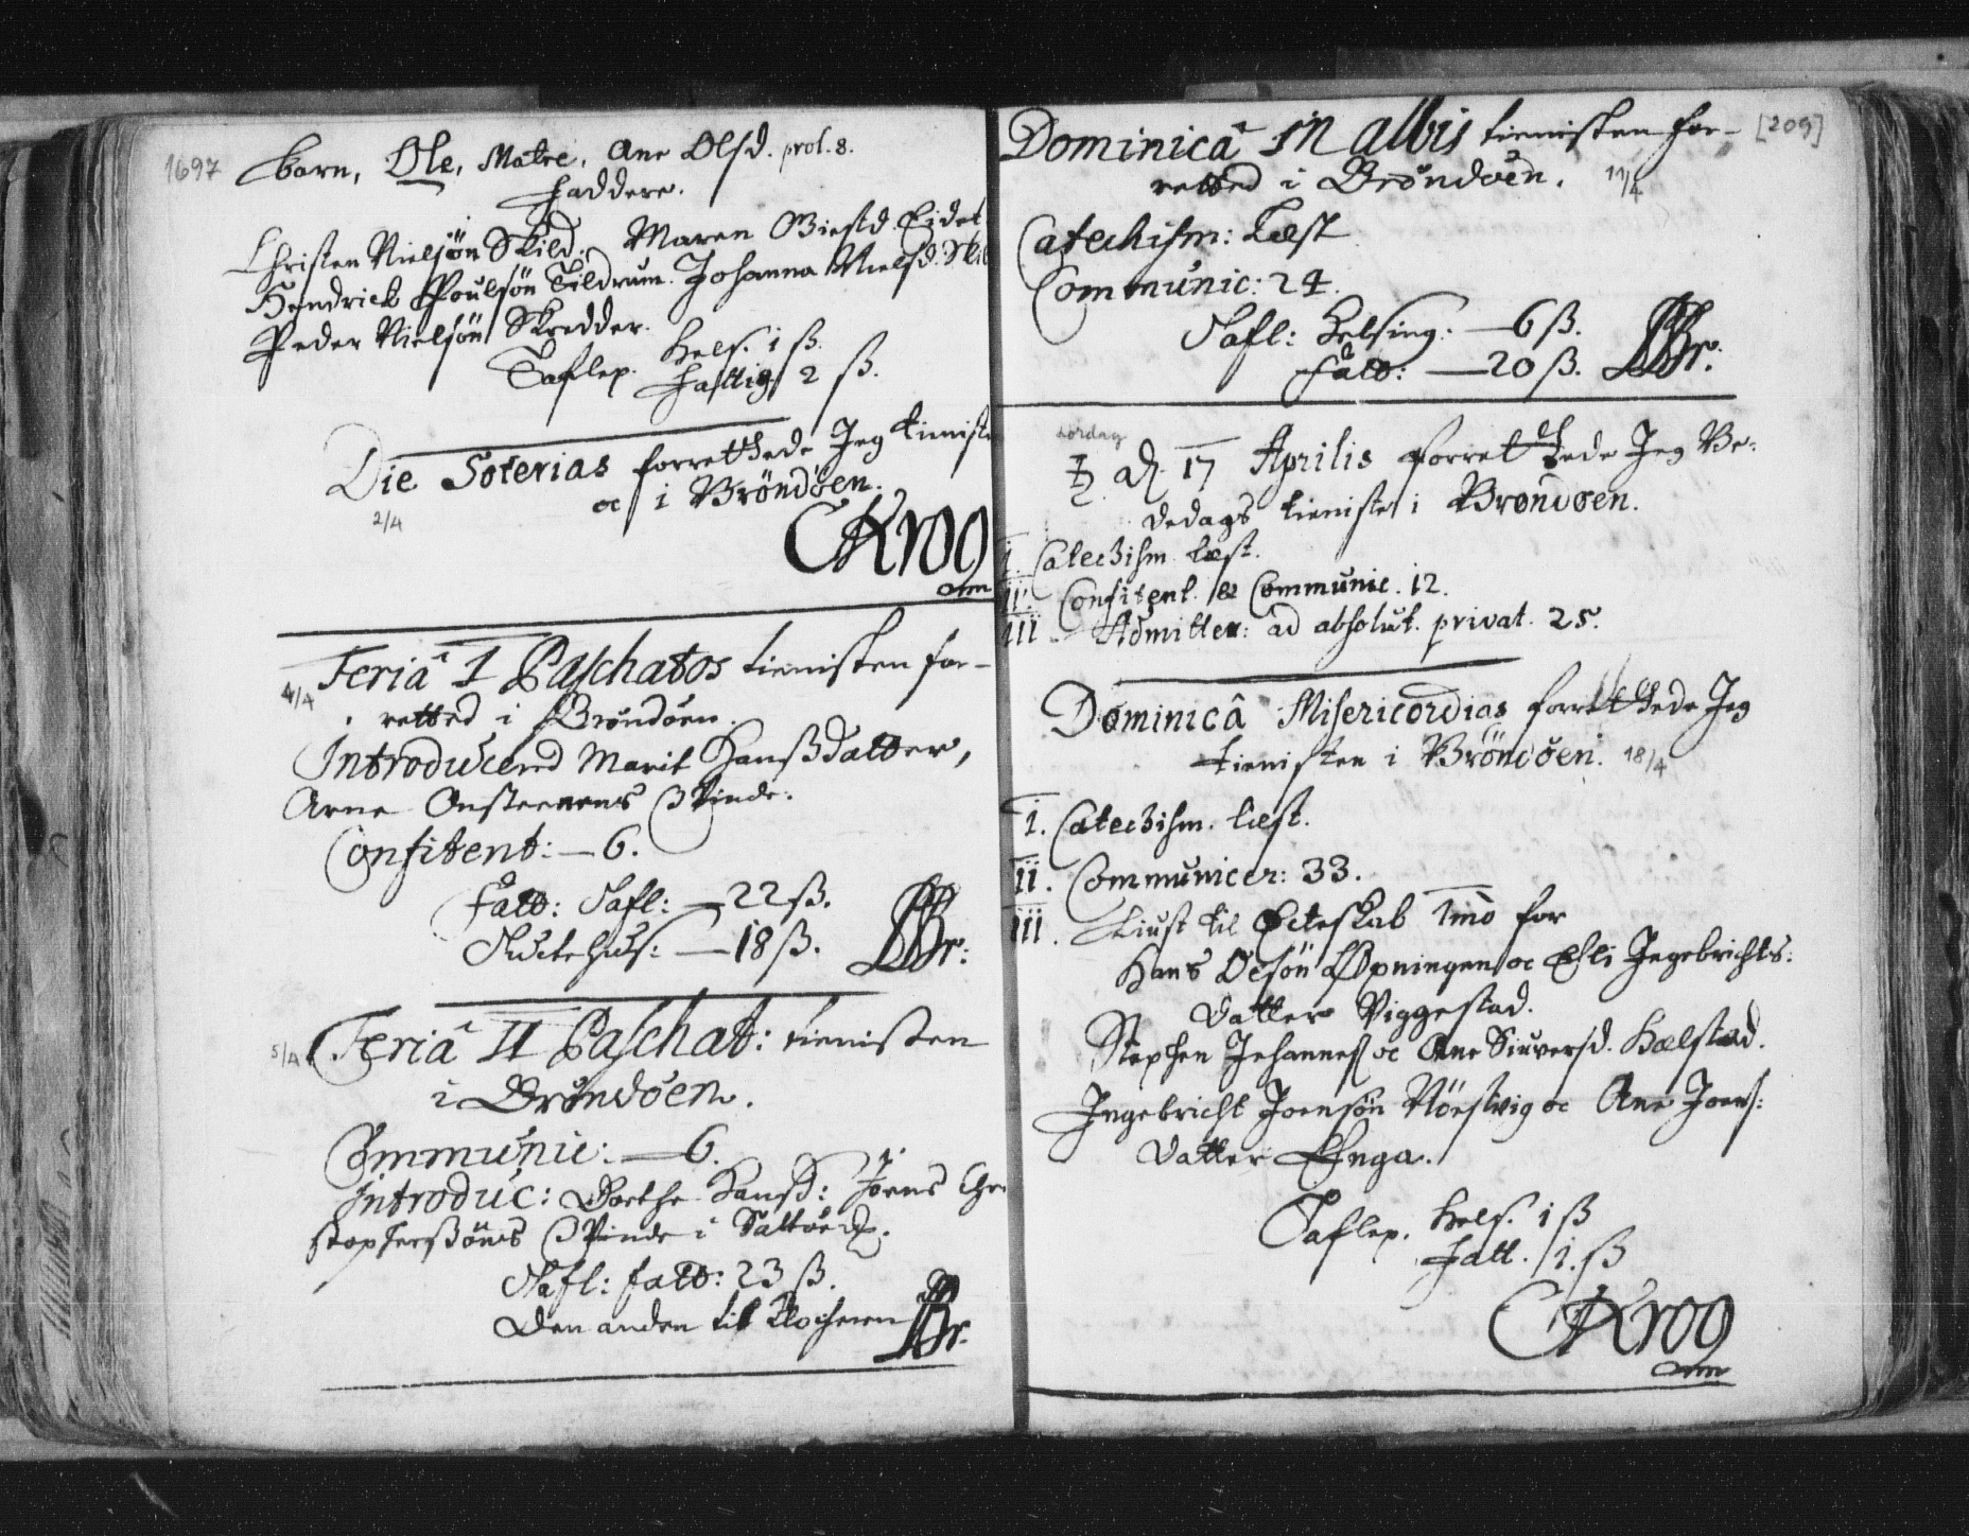 1697
barn, Ole, Matre, Ane Olsd. prol. 8.
Faddere.
Christen Nielsøn Skild. Maren Giestd. Eidet
Hendrick Poulsøn Tildrum. Johanna Nielsd. Skil
Peder Nielsøn Skredder.
Taflep. Hels. 1 ß.
Fattig 2 ß.
Die Soterias forretthede Jeg tienist
oc i Bröndöen.
2/4
CKrog
Feriâ I Paschatos tienisten for-
4/4
retted i Bröndöen.
Introducered Marit Hanßdatter,
Arne Onsteenens Qvinde.
Confitent: — 6.
Fatt: Tafl: — 22 ß.
— 18 ß. Br:
Feriâ II Paschat: tienisten
5/4
i Bröndöen.
Communic: — 6.
Introduc: Dorthe Hansd: Jörens Chri
stopherßöns Qvinde i
Tafl: fatt: 23 ß.
Den anden til Klocheren Br.
Dominicâ in albis tienisten for-
[209]
retted i Bröndöen. 11/4
Catechism: Læst
Communic: 24.
Tafl: Helsing: — 6 ß.
Fatt: — 20 ß. Br:
Lørdag
♄ d. 17 Aprilis forretthede Jeg Be-
dedags tieniste i Bröndöen.
I. Catechism. læst.
II. Confitent. & Communic. 12.
III Admitter: ad absolut. privat. 25.
Dominicâ Misericordias forretthede Jeg
tienisten i Bröndöen. 18/4
I. Catechism. læst.
II. Communicer: 33.
III. Liust til Ecteskab 1mo for
Hans Olsön Öpningen oc Elli Ingebrichts:
datter Viggestad.
Stephen Johannes oc Ane Siuversd. Hælstad.
Ingebricht Joensön Nöestvig oc Ane Joens:
datter Enga.
Taflep. Hels. 1 ß
Fatt. 1. ß
CKrog